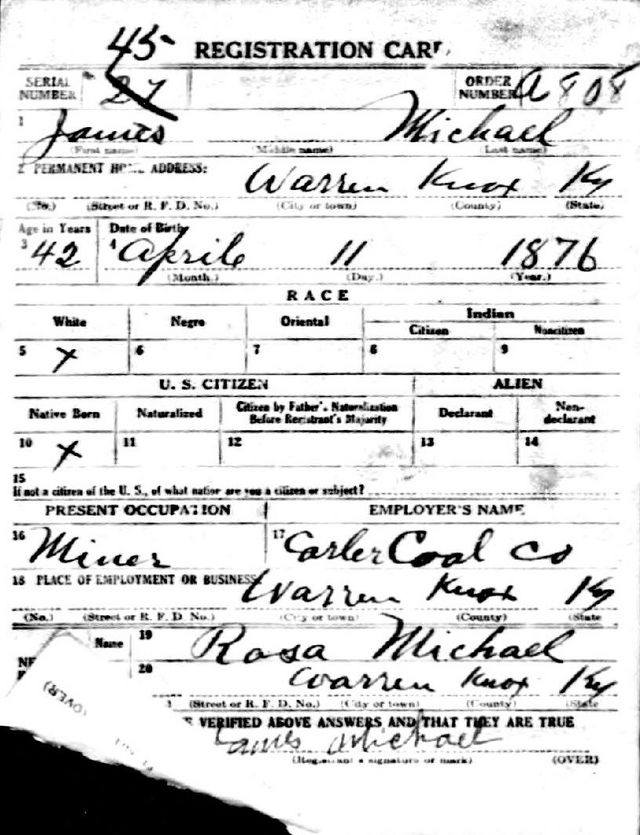 45 REGISTRATION CARD
SERIAL NUMBER 27 ORDER NUMBER A808
1 James Michael
(First name) (Middle name) (Last name)
2 PERMANENT HOME ADDRESS: Warren Knox Ky
(No.) (Street or R. F. D. No.) (City or town) (County) (State)
Age in Years Date of Birth
3 42 4 Aprile 11 1876
(Month.) (Day.) (Year.)
RACE
White Negro Oriental Indian
Citizen Noncitizen
5 X 6 7 8 9
U. S. CITIZEN ALIEN
Native Born Naturalized Citizen by Father's Naturalization Before Registrant's Majority Declarant Non-declarant
10 X 11 12 13 14
15
If not a citizen of the U. S., of what nation are you a citizen or subject?
PRESENT OCCUPATION EMPLOYER'S NAME
16 Miner 17 Coal Co
18 PLACE OF EMPLOYMENT OR BUSINESS: Warren Knox Ky
(No.) (Street or R. F. D. No.) (City or town) (County) (State
Name 19 Rosa Michael
20 Warren Knox Ky
(Street or R. F. D. No.) (City or town) (County) (State
VERIFIED ABOVE ANSWERS AND THAT THEY ARE TRUE
James Michael
(Registrant's signature or mark) (OVER)
(OVER)